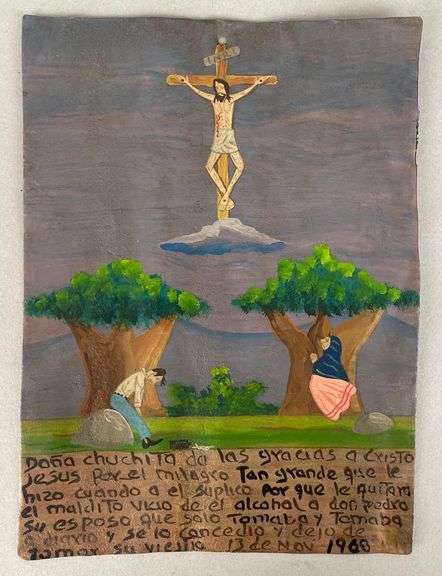 Doña chuchita da las gracias a Cristo
Jesus Por el milagro Tan grande que le
hizo cuando a el suplico Por que le quitara
el maldito vicio de el alcohal a don pedro
su esposo que solo Tomaba y Tomaba
a diario y se lo concedio y dejo de
Tomar su viejito 13 de Nov 1960